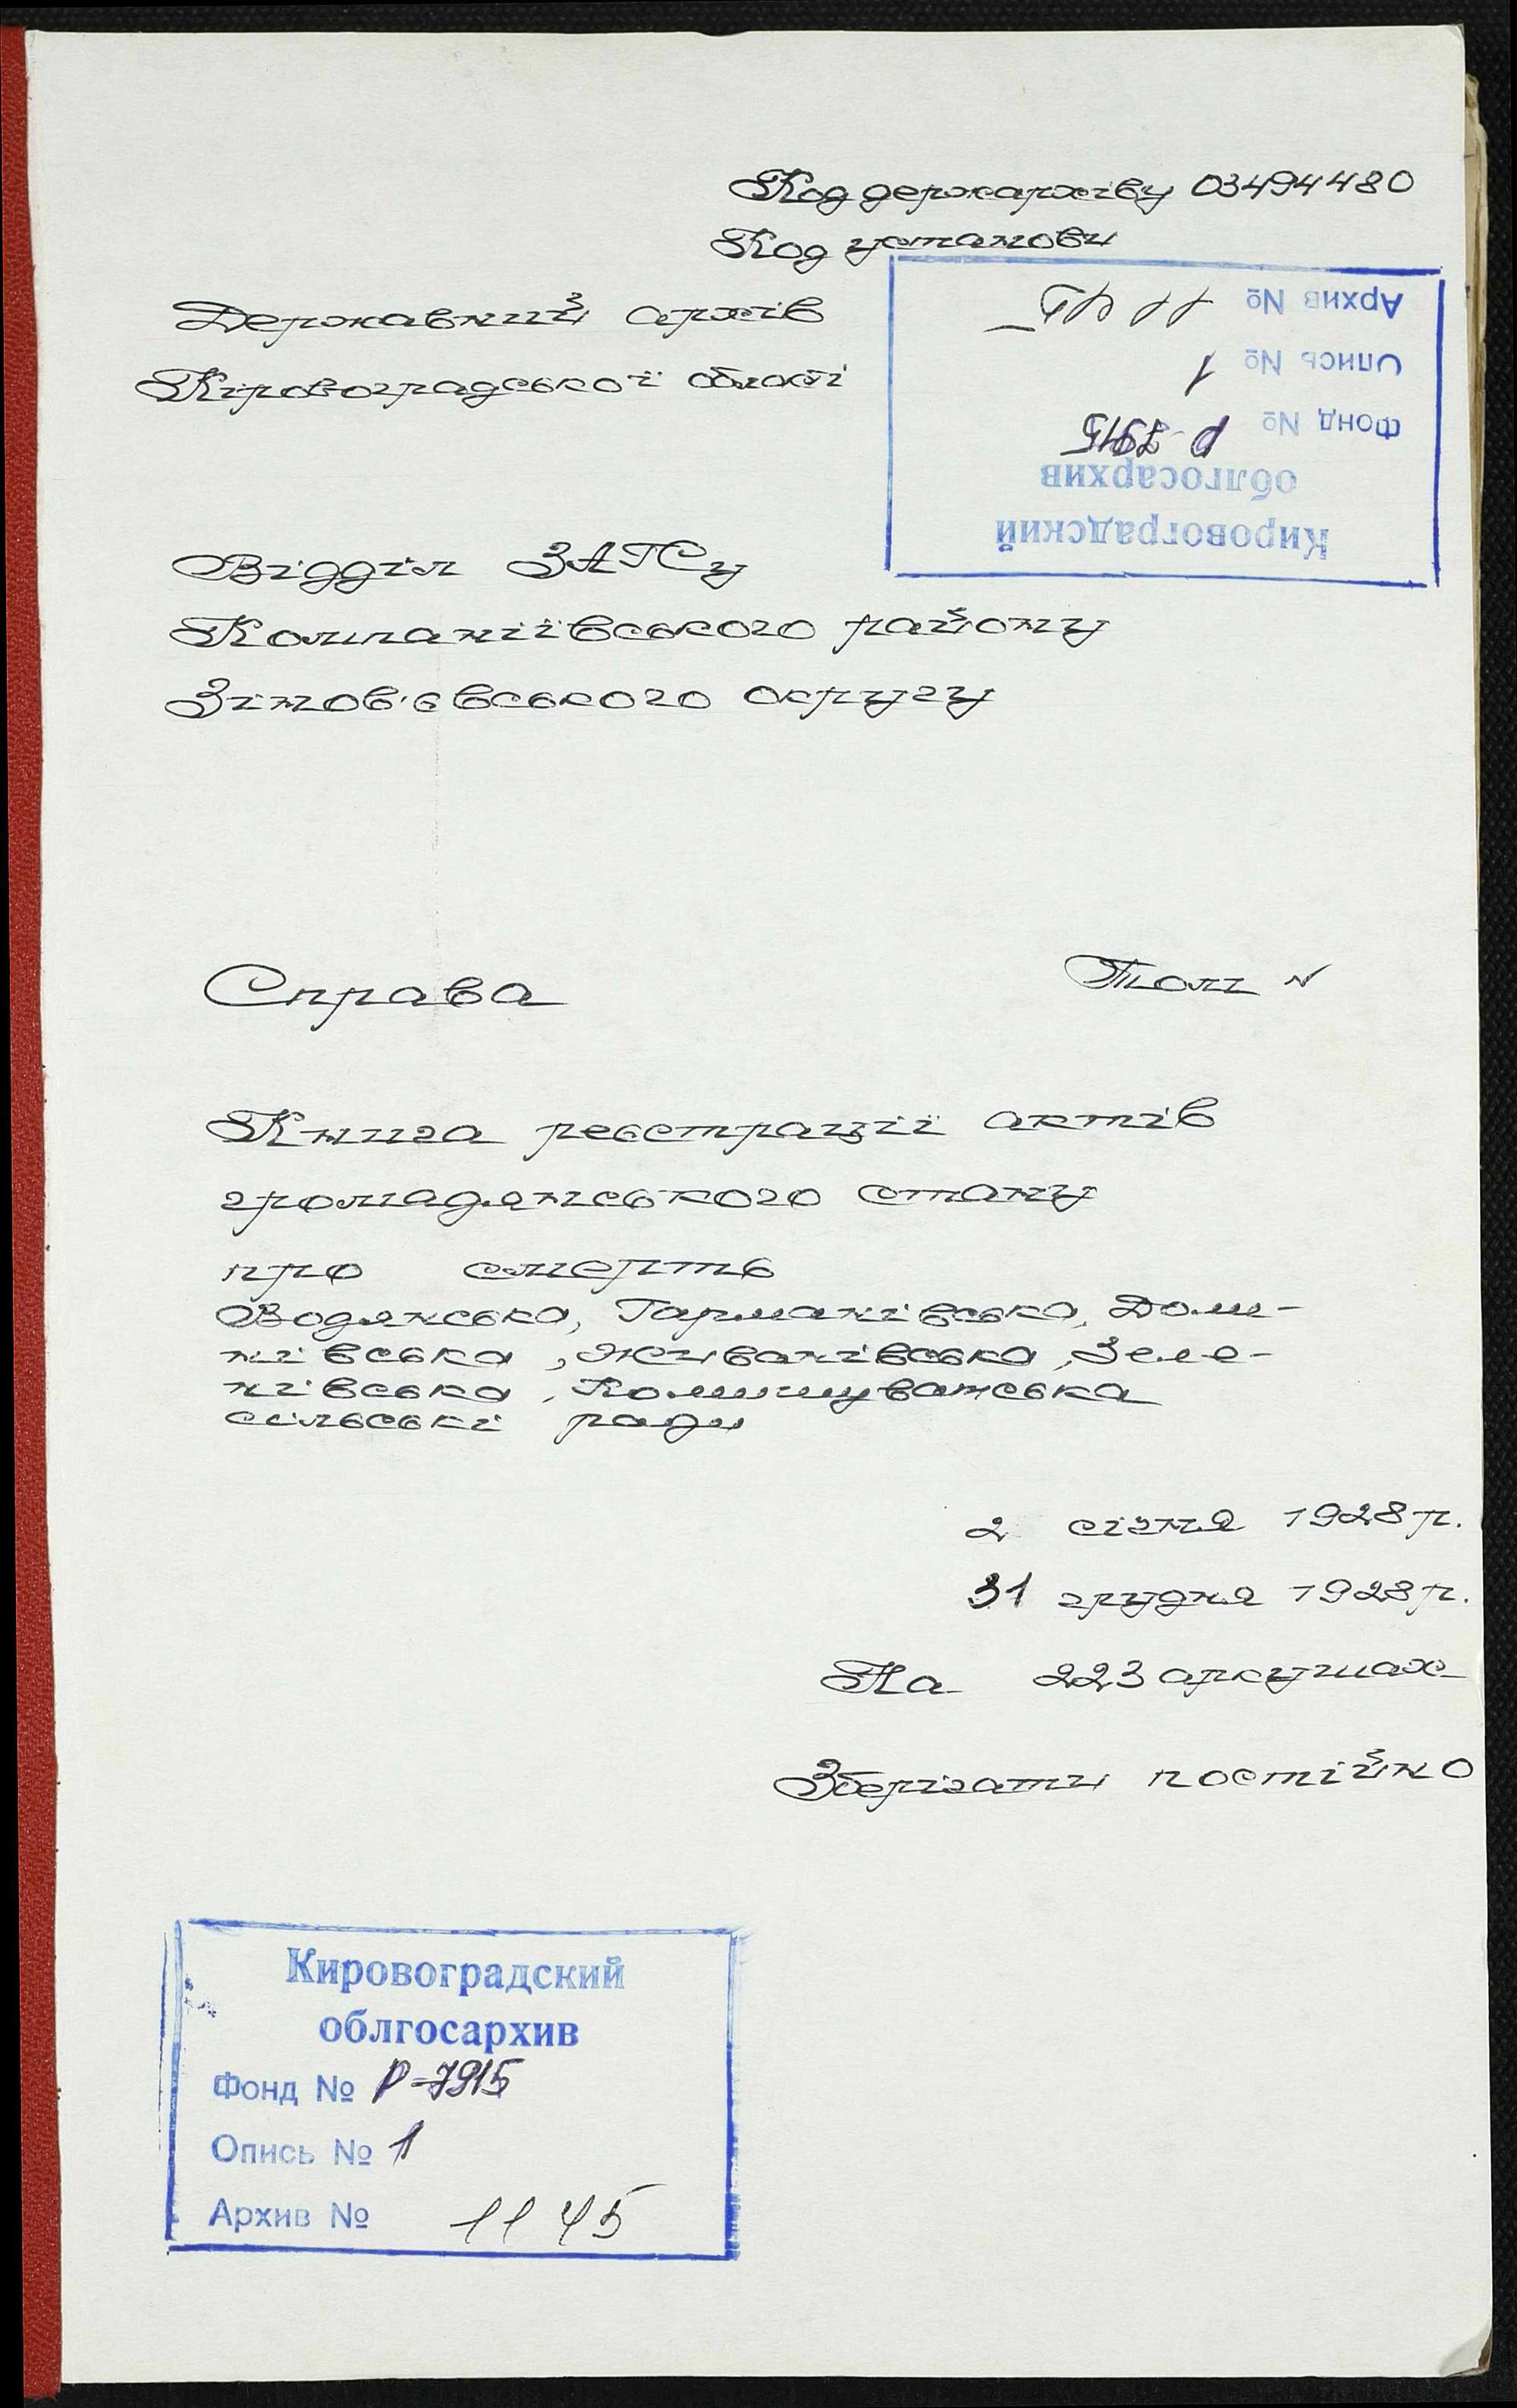 Код держархіву 03494480
Код установи
Державний архів
Кіровоградської області
Кировоградский
облгосархив
Фонд № Р-7915
Опись № 1
Архив № 1145
Відділ ЗАГСу
Компаніївського району
Зінов'євського округу
Справа Том №
Книга реєстрації актів
громадянського стану
про смерть
Водянська, Гарманівська, Дом-
нівська, Живанівська, Зеле-
нівська, Комишуватська
сільські ради
2 січня 1928 р.
31 грудня 1928 р.
На 223 аркушах
Зберігати постійно
Кировоградский
облгосархив
Фонд № Р-7915
Опись № 1
Архив № 1145